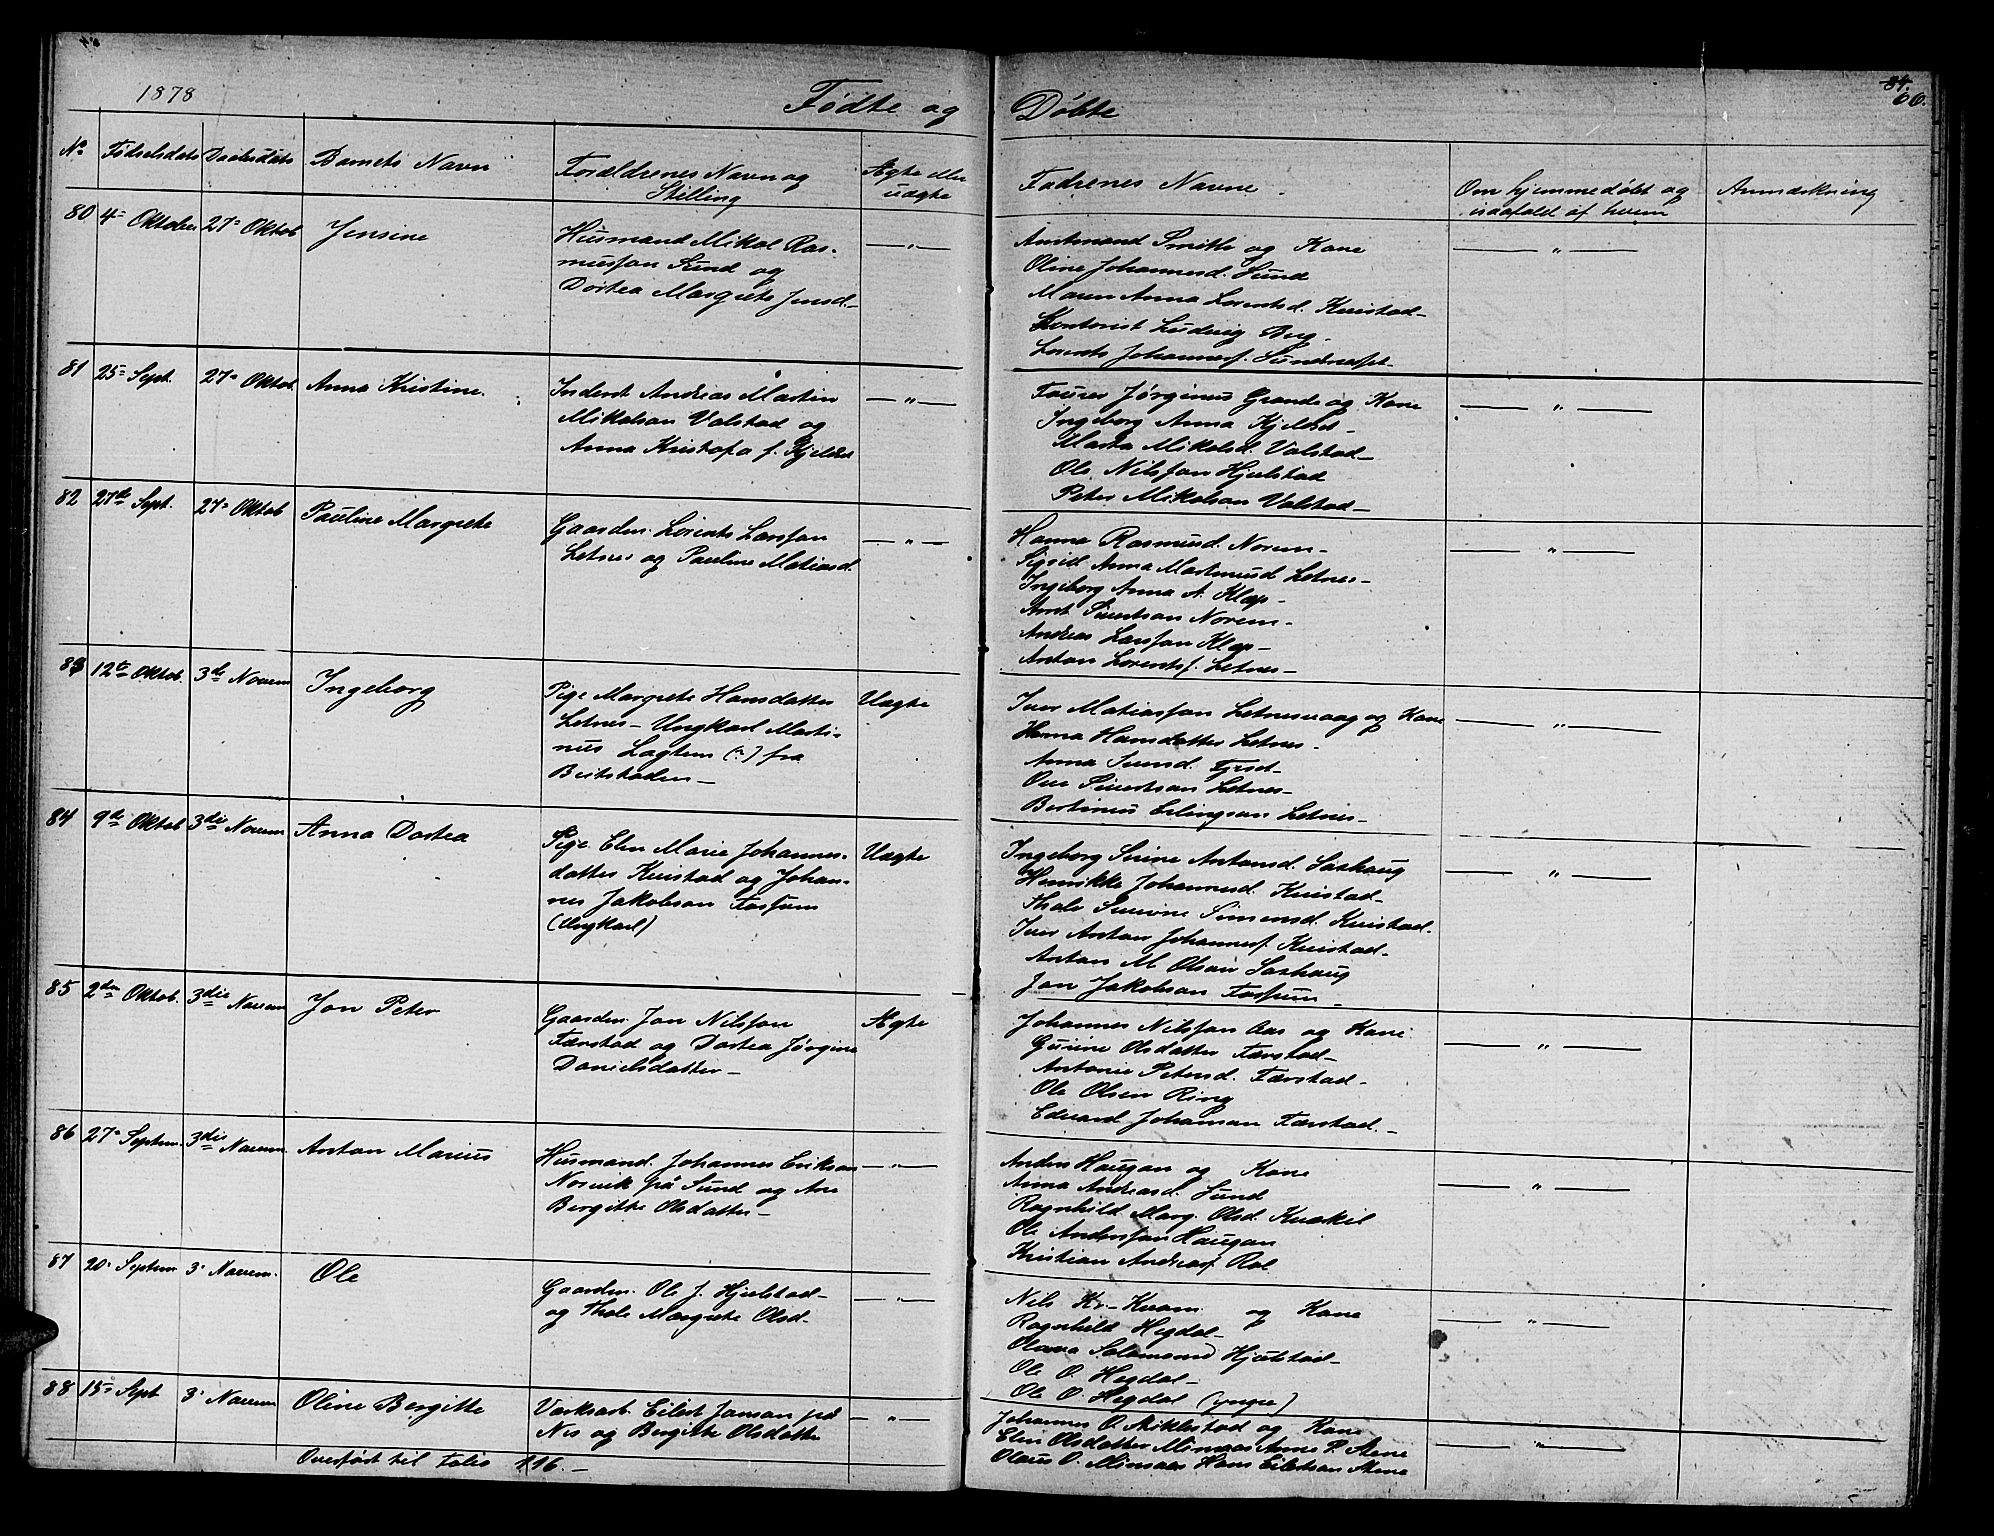 1878
Fødte og Døbte
84.
66.
No
Fødselsdato
Daabsdato
Barnets Navn
Forældrenes Navn og
Stilling
Ægte eller
uægte
Fadrenes Navne.
Om hjemmedøbt og
i saafald af hvem
Anmærkning
80 4de Oktober 27de Oktob Jensine
Husmand Mikal Ras-
mussen Sund og
Dortea Margrete Jensd.
— „ —
Amtmand Smith og Kone
Oline Johannesd. Sund
Maren Anna Lorentsd. Kvistad
Kontorist Ludvig Berg.
Lorents Johannesf. Sundnesset
— „ —
81 25de Sept. 27de Oktob. Anna Kristine.
Inderst Andreas Martin
Mikalsen Valstad og
Anna Kristofa f. Kjeldsd
— „ —
Jørginus Grande og Kone
Ingeborg Anna Kjeldsd
Marta Mikalsd. Valstad
Ole Nilssen Hjulstad
Peter Mikalsen Valstad
— „ —
82 27de Sept. 27de Oktob Pauline Margrete
Gaardm. Lorents Larssen
Letnes og Pauline Matiasd.
— „ —
Hanna Rasmusd. Norem
Sigrid Anna Letnes
Ingeborg Anna A. Klæp
Arnt Sivertsen Norem
Andreas Larssen Klæp
Anton Lorentsf. Letnes
— „ —
83 12te Oktob. 3de Novem Ingeborg
Pige Margrete Hansdatter
Letnes — Ungkarl Marti-
nus Lagtem (?) fra
Beitstaden —
Uægte
Iver Matiassen Letnesvaag og Kone
Hanna Hansdatter Letnes
Anna
Ove Sivertsen Letnes
Bertinus Erlingsen Letnes
— „ —
84 9de Oktob 3die Novem Anna Dortea
Pige Elen Marie Johannes-
datter Kvistad og Johan-
nes Jakobsen Fossum
(Ungkarl)
Uægte
Ingeborg Serine Antonsd. Saxhaug
Henrikke Johannesd. Kvistad
Thale Simonsd. Kvistad
Iver Anton Johannesf. Kvistad
Anton M Olsen Saxhaug
Jon Jakobsen Fossum
— „ —
85 2den Oktob. 3die Novem Jon Peter
Gaardm. Jon Nilssen
Færstad og Dortea Jørgine
Danielsdatter
Ægte
Johannes Nilssen Aas og Kone
Gurine Olsdatter Færstad
Antonie Petersd. Færstad
Ole Olsen Ring
Edvard Johansen Færstad.
— „ —
86 27de Septem. 3die Novem. Anton Marius
Husmand. Johannes Eriksen
Norvik på Sund og Ane
Bergitte Olsdatter
— „ —
Anders Haugan og Kone
Anna Andreasd. Sund
Ragnhild Marg. Olsd. Kvækil
Ole Anderssen Haugan
Kristian Andreasf. Rol
— „ —
87 20de Septem 3de Novem. Ole
Gaardm. Ole J. Hjulstad
og Thale Margrete Olsd
— „ —
Nils Kr. Kvam og Kone
Ragnhild Hegdal
Olava Salamonsd Hjulstad
Ole O. Hegdal
Ole O. Hegdal (yngre)
— „ —
88 15de Sept 3de Novem Oline Bergitte
Værksarb. Eilert Jansen på
Nes og Bergitte Olsdatter
— „ —
Johannes O. Stiklestad og Kone
Elen Olsdatter Minsaas Anne P. Stene
Olaus O. Minsaas Hans Eilertsen Stene
— „ —
Overført til Folio 116. —